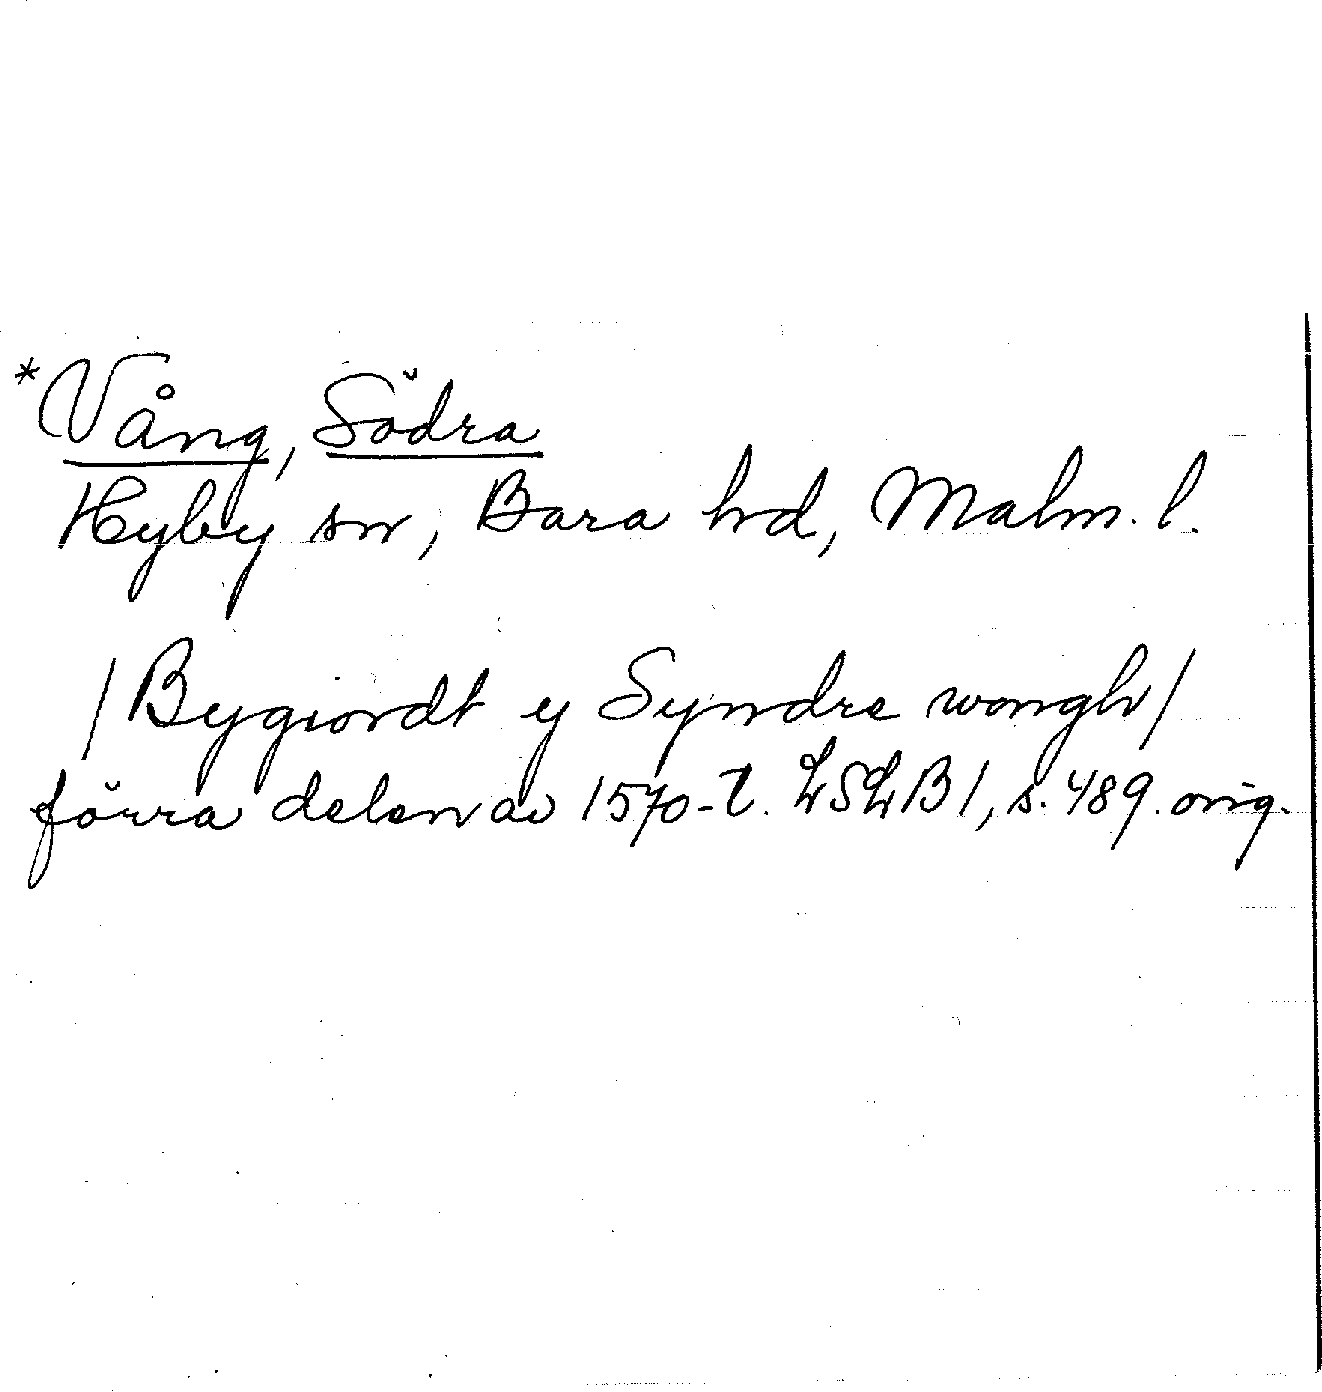 *Vång, Södra
Hyby sn, Bara hd, Malm. l.
/Bygiordt y Syndre wongh/
förra delen av 1570-t. LSLB 1, s. 489. orig.